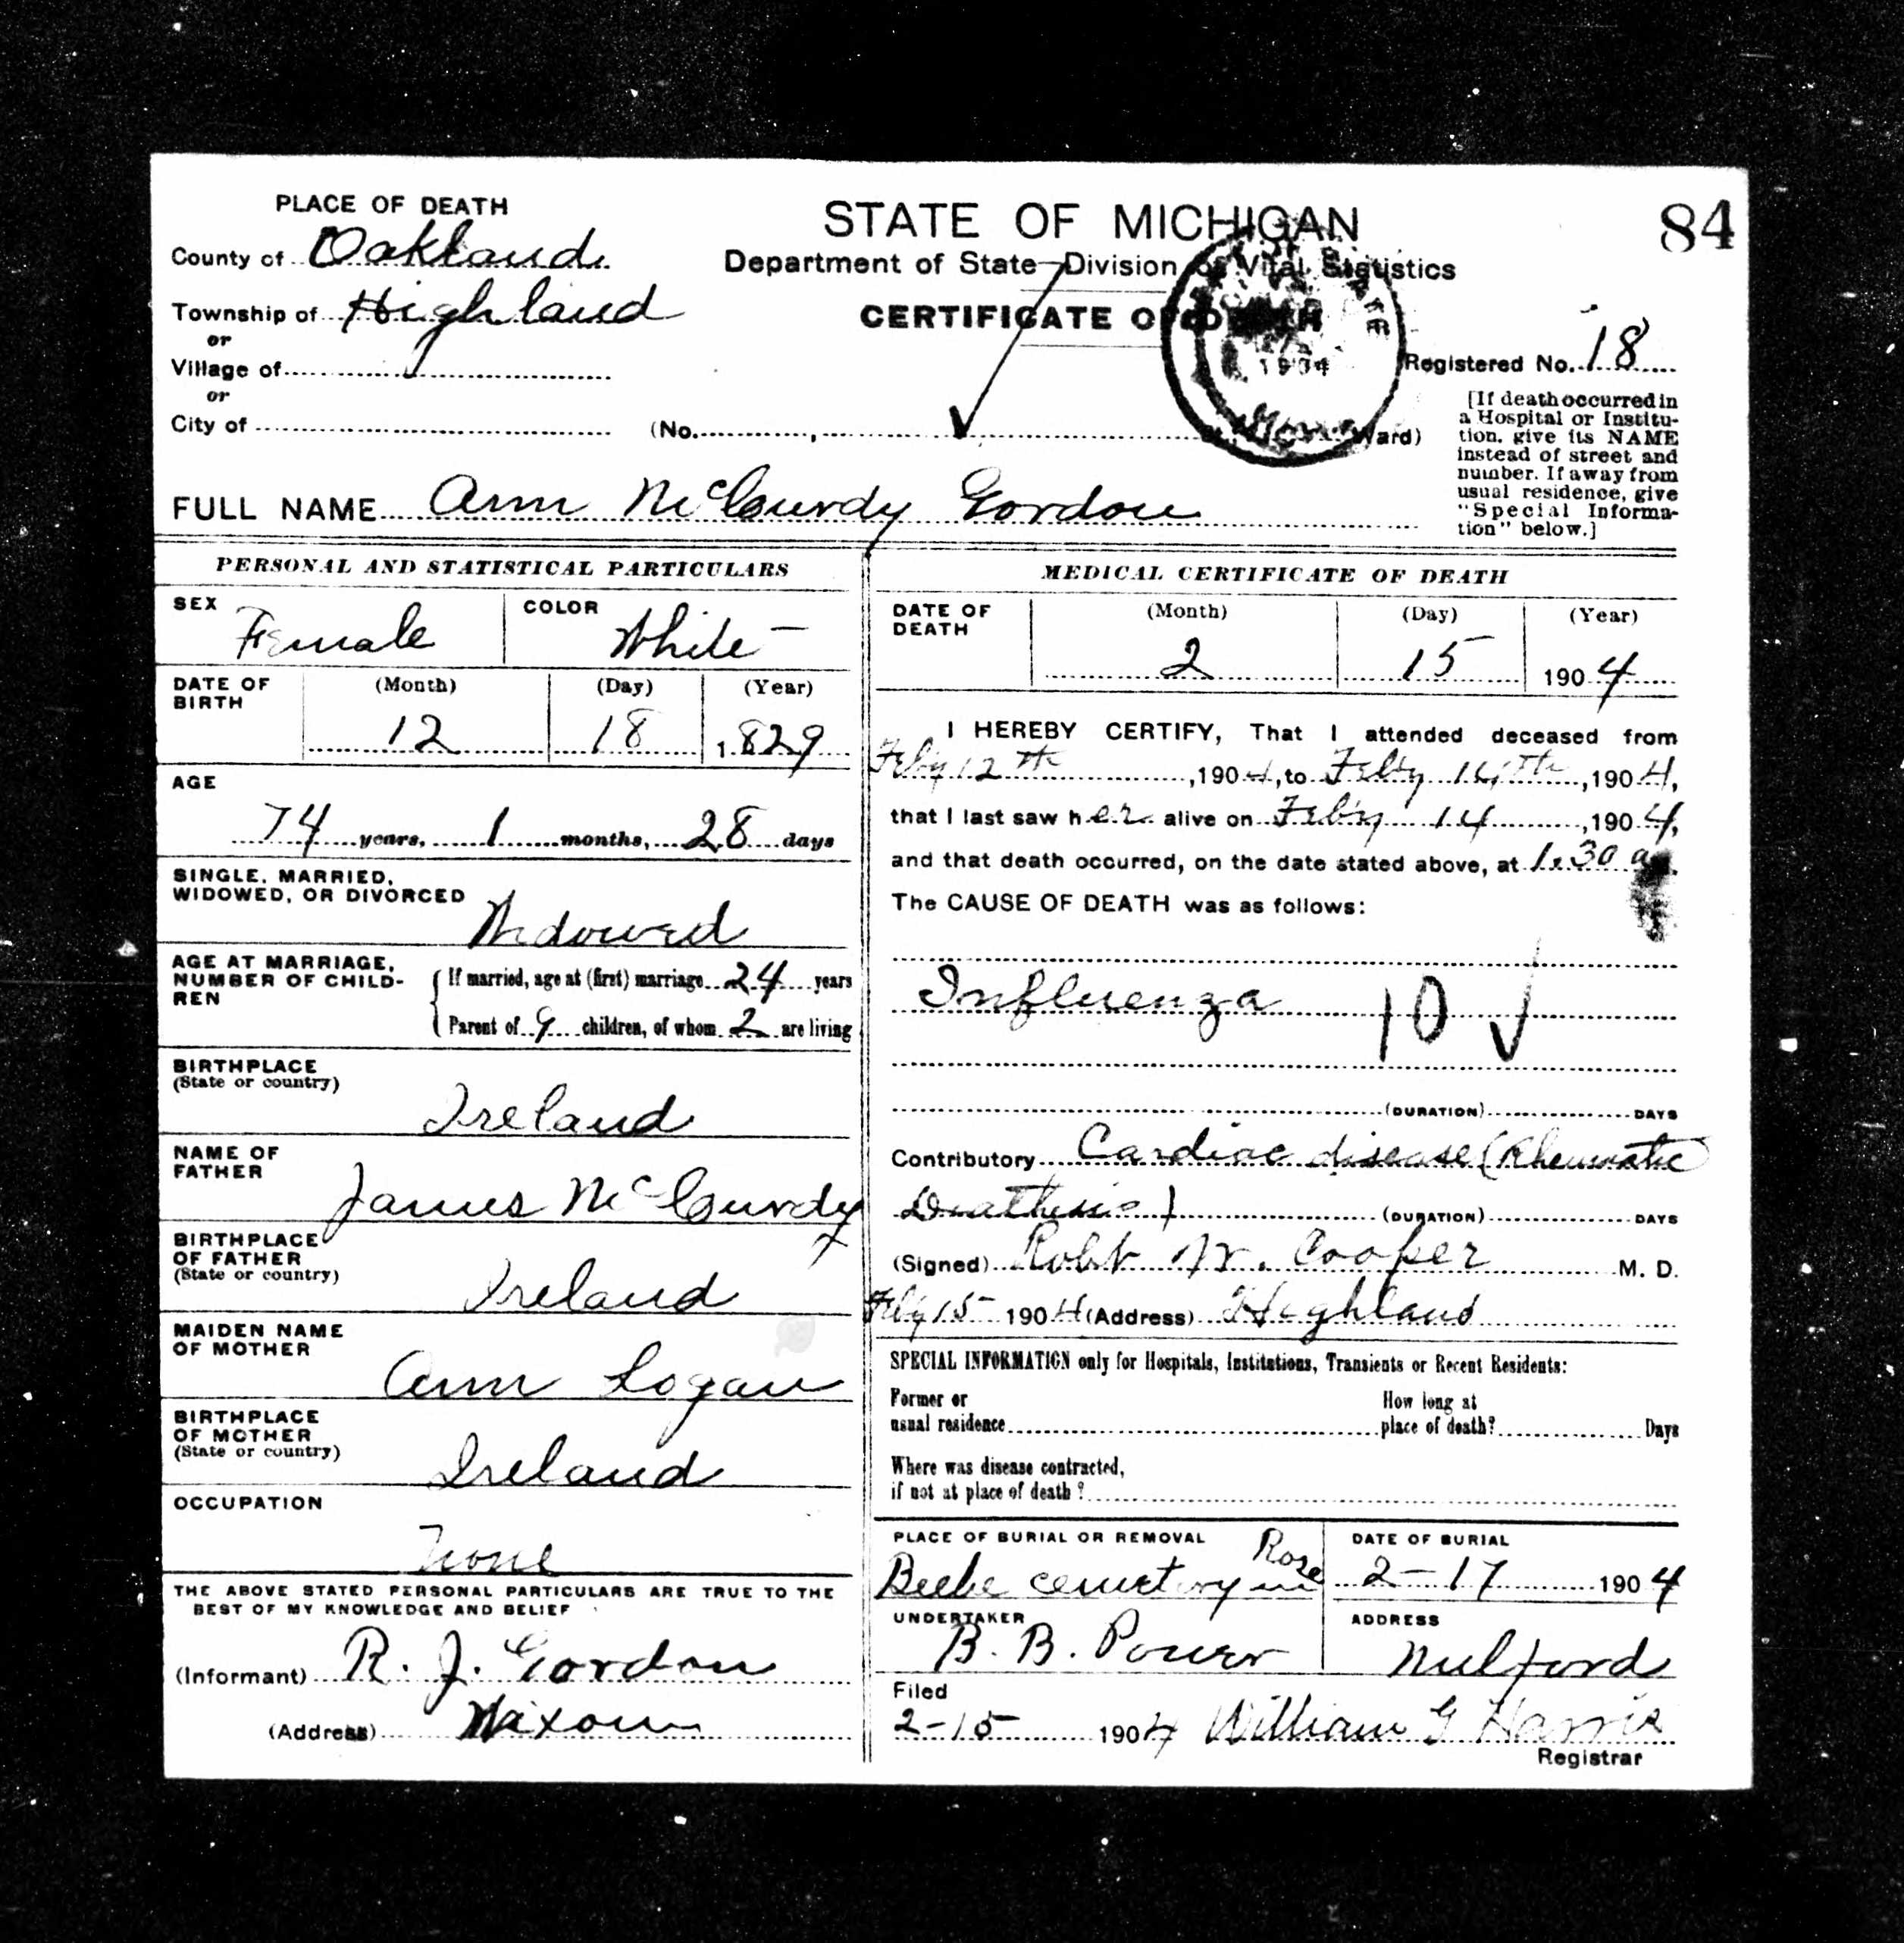 84
PLACE OF DEATH
County of Oakland
Township of Highland
or
Village of
or
City of
STATE OF MICHIGAN
Department of State—Division of Vital Statistics
CERTIFICATE OF DEATH
1904
Registered No. 18
(No. , Ward)
[If death occurred in
a Hospital or Institu-
tion, give its NAME
instead of street and
number. If away from
usual residence, give
"Special Informa-
tion" below.]
FULL NAME Ann McCurdy Gordon
PERSONAL AND STATISTICAL PARTICULARS
SEX Female COLOR White
DATE OF BIRTH (Month) 12 (Day) 18 (Year) 1829
AGE
74 years, 1 months, 28 days
SINGLE, MARRIED,
WIDOWED, OR DIVORCED Widowed
AGE AT MARRIAGE,
NUMBER OF CHILD-
REN
If married, age at (first) marriage 24 years
Parent of 9 children, of whom 2 are living
BIRTHPLACE
(State or country)
Ireland
NAME OF
FATHER
James McCurdy
BIRTHPLACE
OF FATHER
(State or country)
Ireland
MAIDEN NAME
OF MOTHER
Ann Logan
BIRTHPLACE
OF MOTHER
(State or country)
Ireland
OCCUPATION
None
THE ABOVE STATED PERSONAL PARTICULARS ARE TRUE TO THE
BEST OF MY KNOWLEDGE AND BELIEF
(Informant) R. J. Gordon
(Address) Wixom
MEDICAL CERTIFICATE OF DEATH
DATE OF DEATH (Month) 2 (Day) 15 (Year) 1904
I HEREBY CERTIFY, That I attended deceased from
Feby 12th, 1904, to Feby 14th, 1904,
that I last saw her alive on Feby 14, 1904,
and that death occurred, on the date stated above, at 1.30 a
The CAUSE OF DEATH was as follows:
Influenza 10
(DURATION) DAYS
Contributory Cardiac disease (Rheumatic
Diathesis)
(DURATION) DAYS
(Signed) Robt W. Cooper M. D.
Feby 15 1904 (Address) Highland
SPECIAL INFORMATION only for Hospitals, Institutions, Transients or Recent Residents:
Former or
usual residence
How long at
place of death? Days
Where was disease contracted,
if not at place of death?
PLACE OF BURIAL OR REMOVAL
Beebe cemetery in Rose
DATE OF BURIAL
2-17 1904
UNDERTAKER
B. B. Power
ADDRESS
Milford
Filed
2-15 1904 William G Harris
Registrar